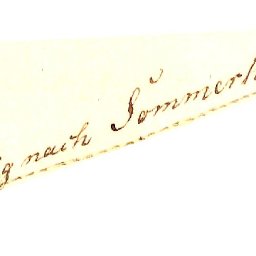 g nach Sommerl